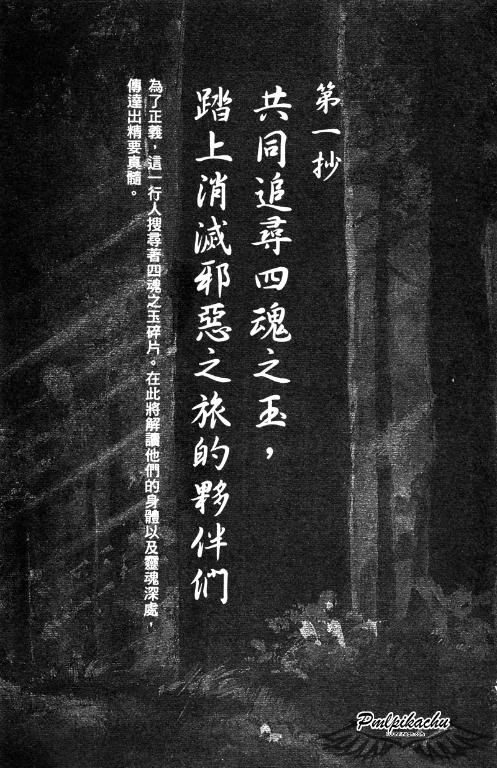 第一抄
共同追尋四魂之玉，
踏上消滅邪惡之旅的夥伴們
為了正義，這一行人搜尋著四魂之玉碎片。在此將解讀他們的身體以及靈魂深處，
傳達出精要真髓。
Pmlpikachu